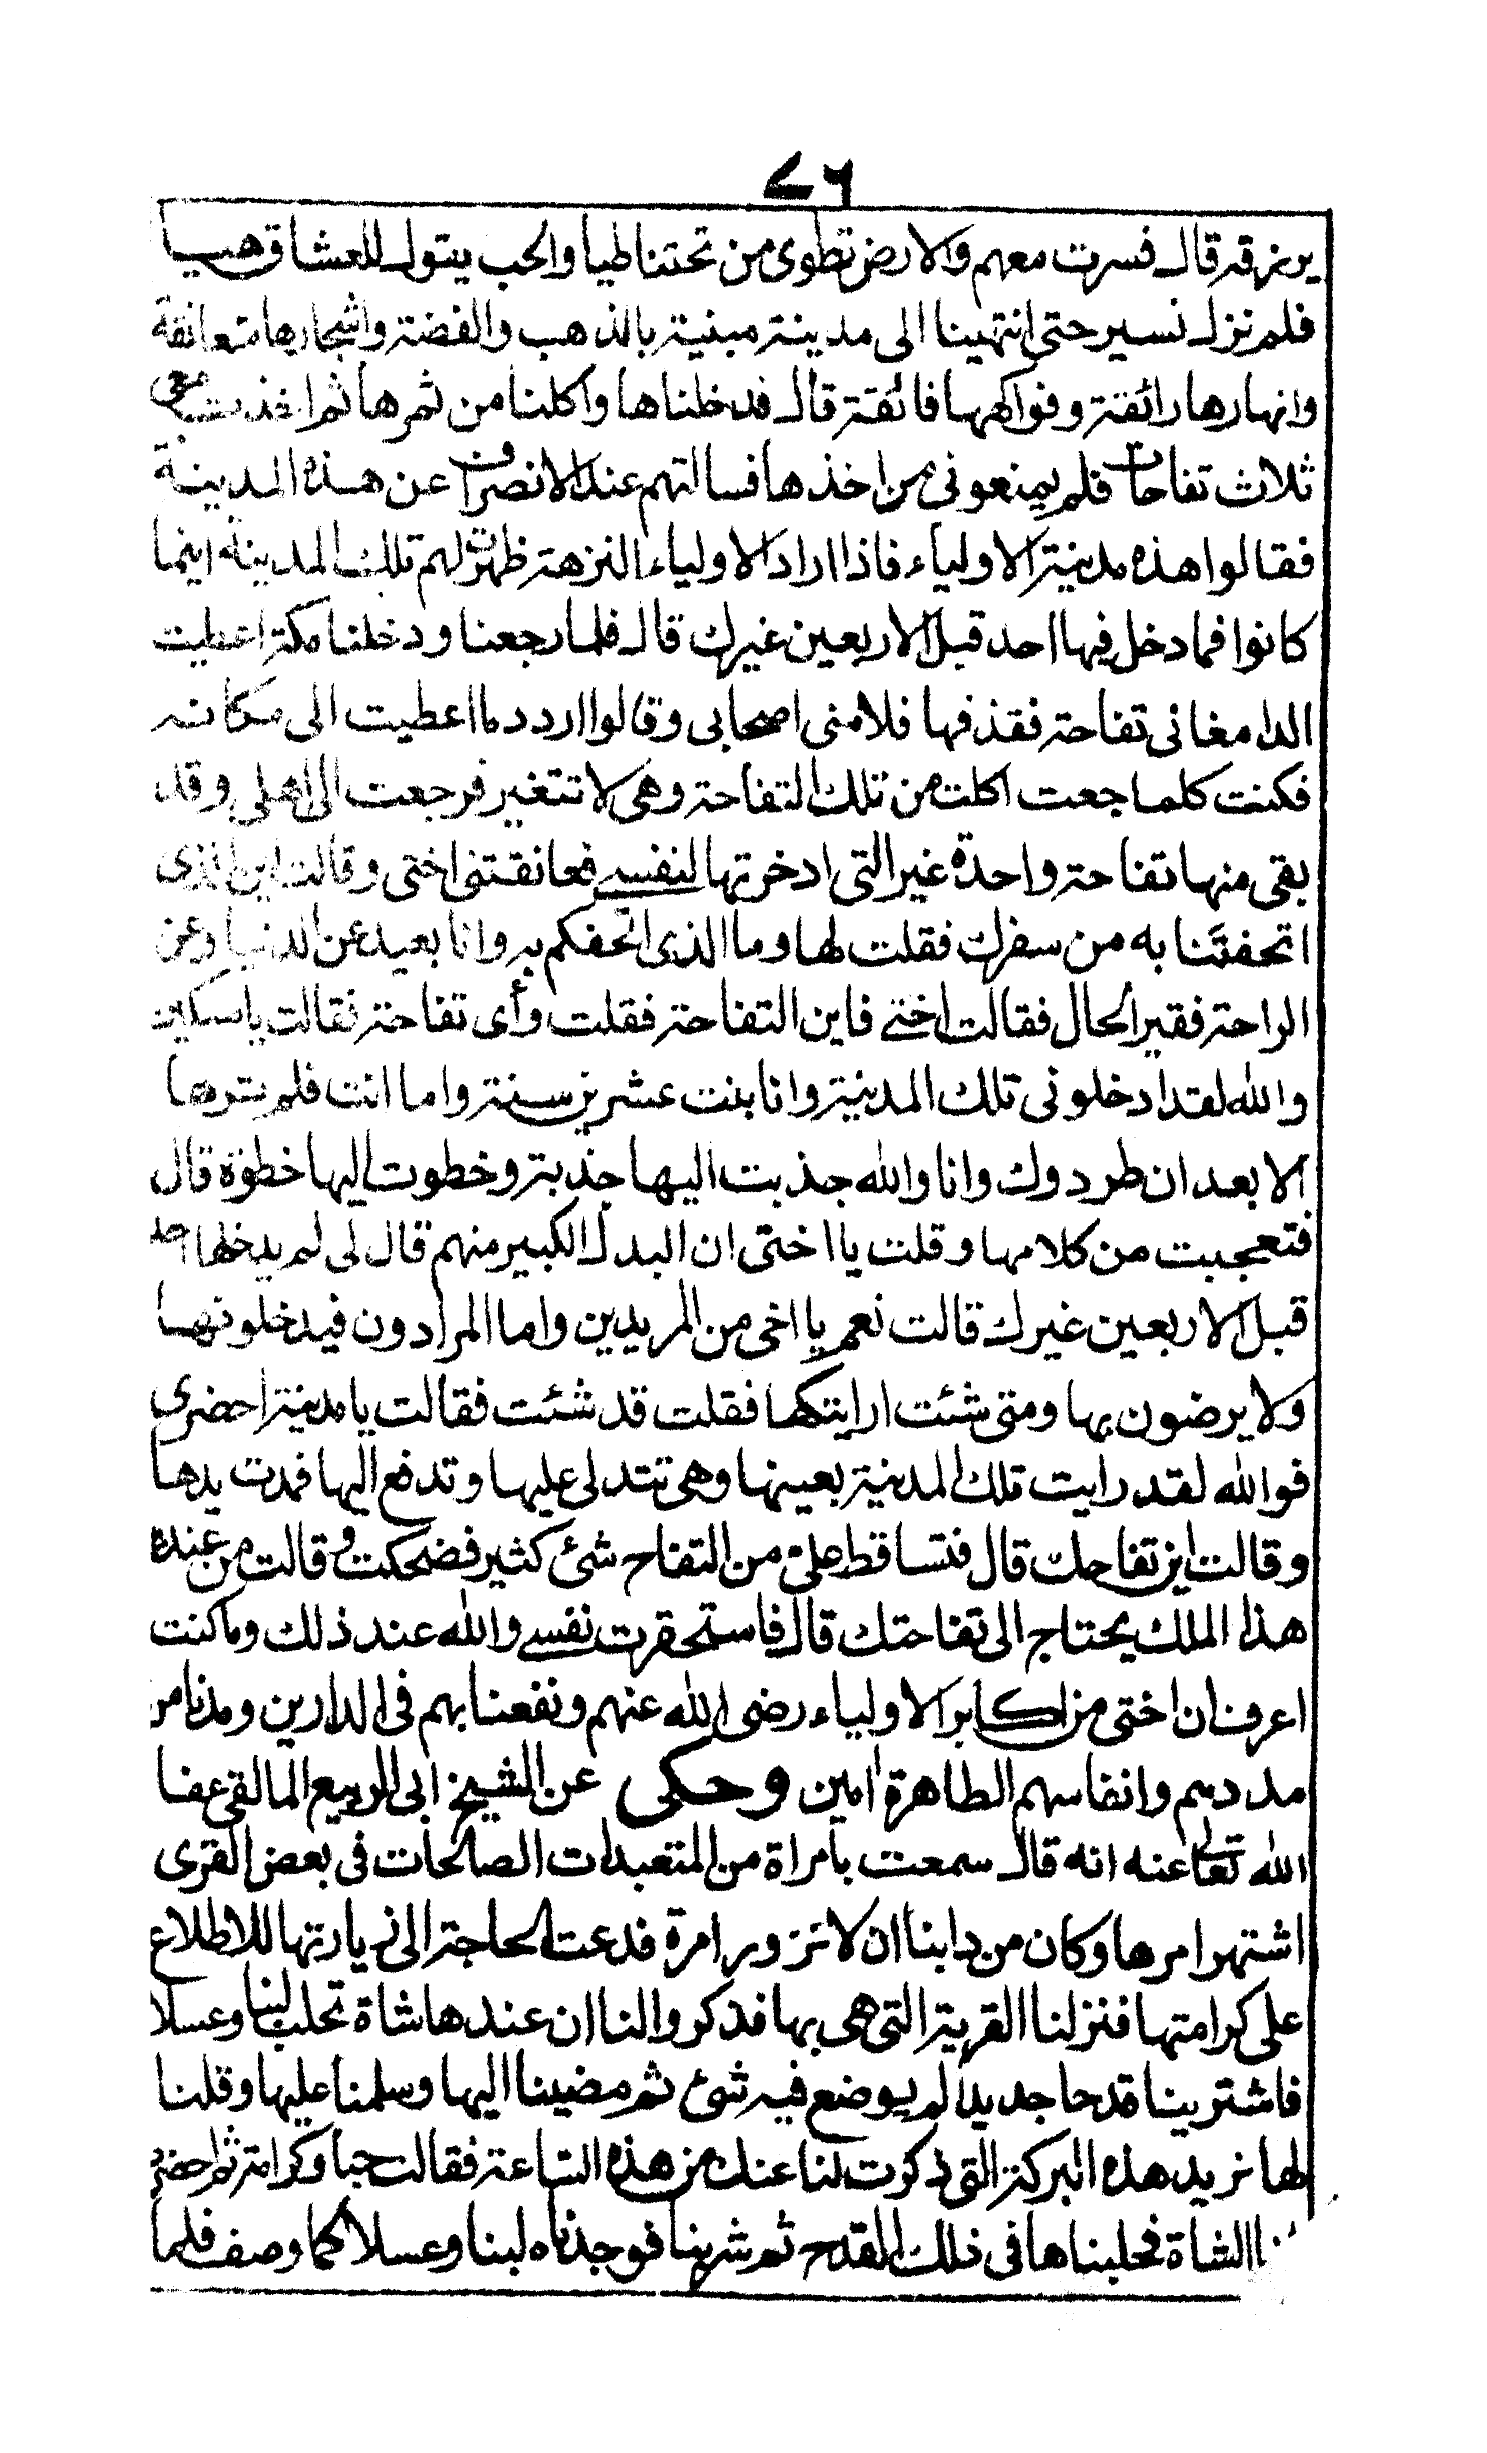 ٧٦
يرزقه قال فسرت معهم والارض تطوى من تحتنا طيا والحب يقول للعشاق هيا
فلم نزل نسير حتى انتهينا الى مدينة مبنية بالذهب والفضة واشجارها متعانقة
وانهارها رائقة وفواكهها فائقة قال فدخلناها واكلنا من ثمرها ثم اخذت معى
ثلاث تفاحات فلم يمنعونى من اخذها فسالتهم عند الانصراف عن هذه المدينة
فقالوا هذه مدينة الاولياء فاذا اراد الاولياء النزهة ظهرت لهم تلك المدينة اينما
كانوا فما دخل فيها احد قبل الاربعين غيرك قال فلما رجعنا ودخلنا مكة اعطيت
الدامغانى تفاحة فقذفها فلامنى اصحابى وقالوا اردد ما اعطيت الى مكانه
فكنت كلما جعت اكلت من تلك التفاحة وهى لا تتغير فرجعت الى اهلى وقد
بقى منها تفاحة واحدة غير التى ادخرتها لنفسى فعانقتنى اختى وقالت اين الذى
اتحفتنا به من سفرك فقلت لها وما الذى اتحفكم به وانا بعيد عن الدنيا وعن
الراحة فقير الحال فقالت اختى فاين التفاحة فقلت وأى تفاحة فقالت يا مسكين
والله لقد ادخلونى تلك المدينة وانا بنت عشرين سنة واما انت فلم ترها
الا بعد ان طردوك وانا والله جذبت اليها جذبة وخطوت اليها خطوة قال
فتعجبت من كلامها وقلت يا اختى ان البدل الكبير منهم قال لى لم يدخلها احد
قبل الاربعين غيرك قالت نعم يا اخى من المريدين واما المرادون فيدخلونها
ولا يرضون بها ومتى شئت اريتكها فقلت قد شئت فقالت يا مدينة احضرى
فوالله لقد رايت تلك المدينة بعينها وهى تتدلى عليها وتدفع اليها فمدت يدها
وقالت اين تفاحك قال فتساقط علىّ من التفاح شئ كثير فضحكت وقالت من عنده
هذا الملك يحتاج الى تفاحتك قال فاستحقرت نفسى والله عند ذلك وما كنت
اعرف ان اختى من اكابر الاولياء رضى الله عنهم ونفعنا بهم فى الدارين ومدنا من
مددهم وانفاسهم الطاهرة امين وحكى عن الشيخ ابى الربيع المالقى عفا
الله تعالى عنه انه قال سمعت بامراة من المتعبدات الصالحات فى بعض القرى
اشتهر امرها وكان من دابنا ان لا نزور امرة فدعت الحاجة الى زيارتها للاطلاع
على كرامتها فنزلنا القرية التى هى بها فذكروا لنا ان عندها شاة تحلب لبنا وعسلا
فاشترينا قدحا جديدا لم يوضع فيه شئ ثم مضينا اليها وسلمنا عليها وقلنا
لها نريد هذه البركة التى ذكرت لنا عنك من هذه الشاعة فقالت حبا وكرامة ثم احضرت
لنا الشاة فحلبناها فى ذلك القدح ثم شربنا فوجدناه لبنا وعسلا كما وصف فلما